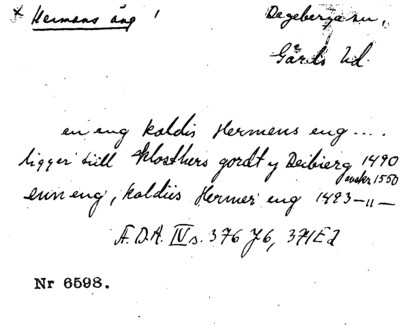 * Hermans äng 1 Degeberga sn,
Gärds hd.
en eng kaldis Hermens eng....
ligger till klosthers gordt y Deibierg 1490
avskr 1550
enn eng, kaldiis Hermer eng 1493 —„—
Æ.D.A. IV s. 376 Y6, 371 E2
Nr 6598.